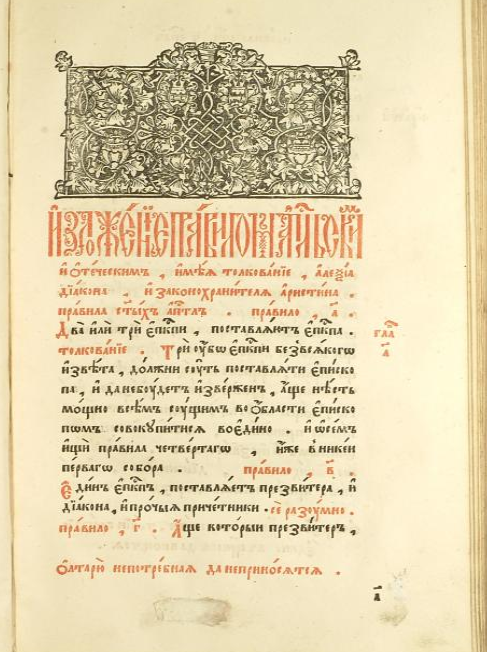 И҆зложе́нїе пра́вилом̾ а҆пⷭ҇льским̾
и҆ ѻ҆те́ческимъ , и҆мѣ́ѧ толкова́нїе , а҆леѯі́а
дїа́кона , и҆ законохрани́телѧ а҆ри́стина .
пра́вила ст҃ы́хъ а҆пⷭ҇лъ . пра́вило , а҃ .
Два̀ и҆лѝ трѝ є҆пⷭ҇кпи , поставлѧ́ютъ є҆пⷭ҇кпа .
толкова́нїе . Трѝ ᲂу҆́бѡ є҆пⷭ҇кпи без̾всѧ́кагѡ
и҆звѣ́та , до́лжни сꙋ́ть поставлѧ́ти є҆пи́ско
па , и҆ да небꙋ́детъ и҆зве́рженъ , а҆́ще нѣ́сть
мо́щно всѣ́мъ сꙋ́щимъ во ѻ҆́бласти є҆пи́ско
пѡмъ совокꙋпи́тисѧ воєди́но . и҆ ѡ҆ се́мъ
и҆щѝ пра́вила четве́ртагѡ , и҆́же в̾ нике́и
пе́рвагѡ собо́ра . пра́вило , в҃ .
Є҆ди́нъ є҆пⷭ҇кпъ , поставлѧ́етъ презви́тера , и҆
дїа́кона , и҆ про́чыѧ приче́тники . сѐ разꙋ́мно .
пра́вило , г҃ . А҆́ще кото́рыи презви́теръ ,
гла̀
а҃
ѻ҆лтарю̀ непотре́бнаѧ да неприно́сѧтсѧ .
а҃